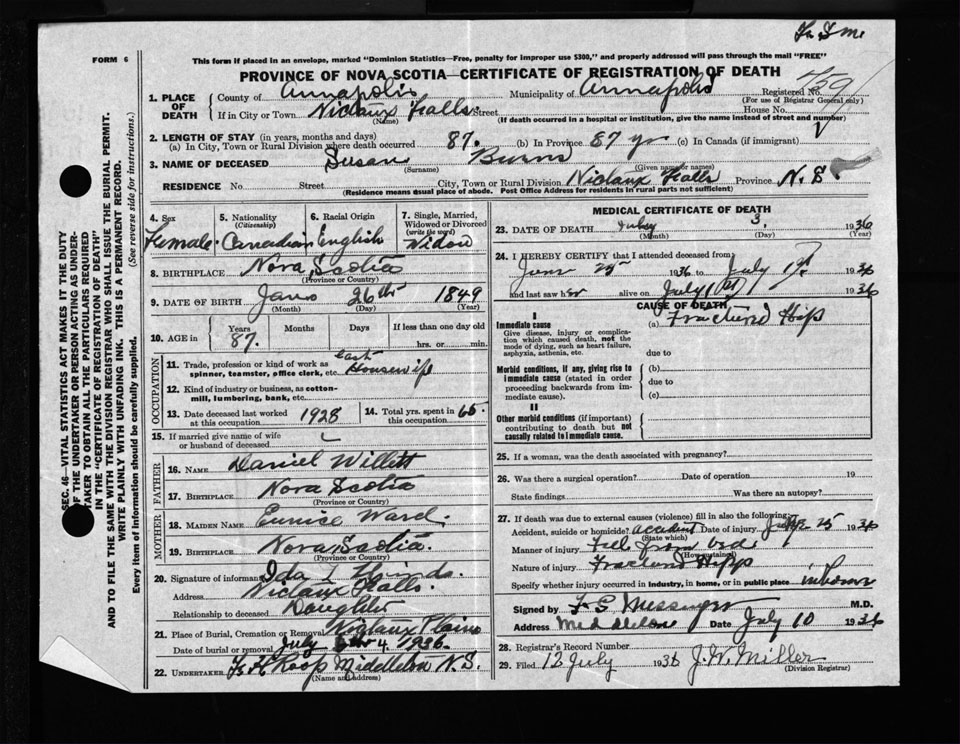 FORM 6
This form if placed in an envelope, marked "Dominion Statistics—Free, penalty for improper use $300," and properly addressed will pass through the mail "FREE"
PROVINCE OF NOVA SCOTIA—CERTIFICATE OF REGISTRATION OF DEATH
1. PLACE OF DEATH
County of Annapolis Municipality of Annapolis Registered No.
(For use of Registrar General only)
If in City or Town Nictaux Falls. Street House No.
(Name) (If death occurred in a hospital or institution, give the name instead of street and number)
2. LENGTH OF STAY (in years, months and days)
(a) In City, Town or Rural Division where death occurred 87. (b) In Province 87 yr (c) In Canada (if immigrant)
3. NAME OF DECEASED Susan Burns
(Surname) (Given name or names)
RESIDENCE No. Street City, Town or Rural Division Nictaux Falls Province N.S.
(Residence means usual place of abode. Post Office Address for residents in rural parts not sufficient)
4. Sex
Female.
5. Nationality
(Citizenship)
Canadian
6. Racial Origin
English
7. Single, Married, Widowed or Divorced
(write the word)
Widow
8. BIRTHPLACE Nova Scotia
(Province or Country)
9. DATE OF BIRTH Jan 26th 1849
(Month) (Day) (Year)
10. AGE in
Years Months Days If less than one day old
87. hrs. or min.
OCCUPATION
11. Trade, profession or kind of work as
spinner, teamster, office clerk, etc. Housewife
12. Kind of industry or business, as cotton-
mill, lumbering, bank, etc.
13. Date deceased last worked
at this occupation 1928
14. Total yrs. spent in
this occupation 65
15. If married give name of wife
or husband of deceased
FATHER
16. NAME Daniel Willett
17. BIRTHPLACE Nova Scotia
(Province or Country)
MOTHER
18. MAIDEN NAME Eunice Ward.
19. BIRTHPLACE Nova Scotia.
(Province or Country)
20. Signature of informant Ida L
Address Nictaux Falls.
Relationship to deceased Daughter
21. Place of Burial, Cremation or Removal Nictaux Plains
Date of burial or removal July 4, 1936.
22. UNDERTAKER Roop Middleton N.S.
(Name and address)
MEDICAL CERTIFICATE OF DEATH
23. DATE OF DEATH July 3, 1936
(Month) (Day) (Year)
24. I HEREBY CERTIFY that I attended deceased from:
June 25 1936 to July 1936
and last saw her alive on July 1st 1936
CAUSE OF DEATH
I
Immediate cause (a) Fractured Hip
Give disease, injury or complica-
tion which caused death, not the
mode of dying, such as heart failure,
asphyxia, asthenia, etc.
due to
Morbid conditions, if any, giving rise to
immediate cause (stated in order
proceeding backwards from im-
mediate cause).
(b)
due to
(c)
II
Other morbid conditions (if important)
contributing to death but not
causally related to immediate cause.
25. If a woman, was the death associated with pregnancy?
26. Was there a surgical operation? Date of operation 19
State findings Was there an autopsy?
27. If death was due to external causes (violence) fill in also the following:
Accident, suicide or homicide? accident Date of injury 25 1936
(State which)
Manner of injury Fell from bed
(How sustained)
Nature of injury Fractured Hipp
Specify whether injury occurred in industry, in home, or in public place in home
Signed by F S Messenger M.D.
Address Middleton Date July 10 1936
28. Registrar's Record Number
29. Filed 12 July 1936 J. W. Miller
(Division Registrar)
SEC. 46—VITAL STATISTICS ACT MAKES IT THE DUTY
OF THE UNDERTAKER OR PERSON ACTING AS UNDER-
TAKER TO OBTAIN ALL THE PARTICULARS REQUIRED
IN THE "CERTIFICATE OF REGISTRATION OF DEATH"
AND TO FILE THE SAME WITH THE DIVISION REGISTRAR WHO SHALL ISSUE THE BURIAL PERMIT.
WRITE PLAINLY WITH UNFADING INK. THIS IS A PERMANENT RECORD.
Every item of information should be carefully supplied. (See reverse side for instructions.)